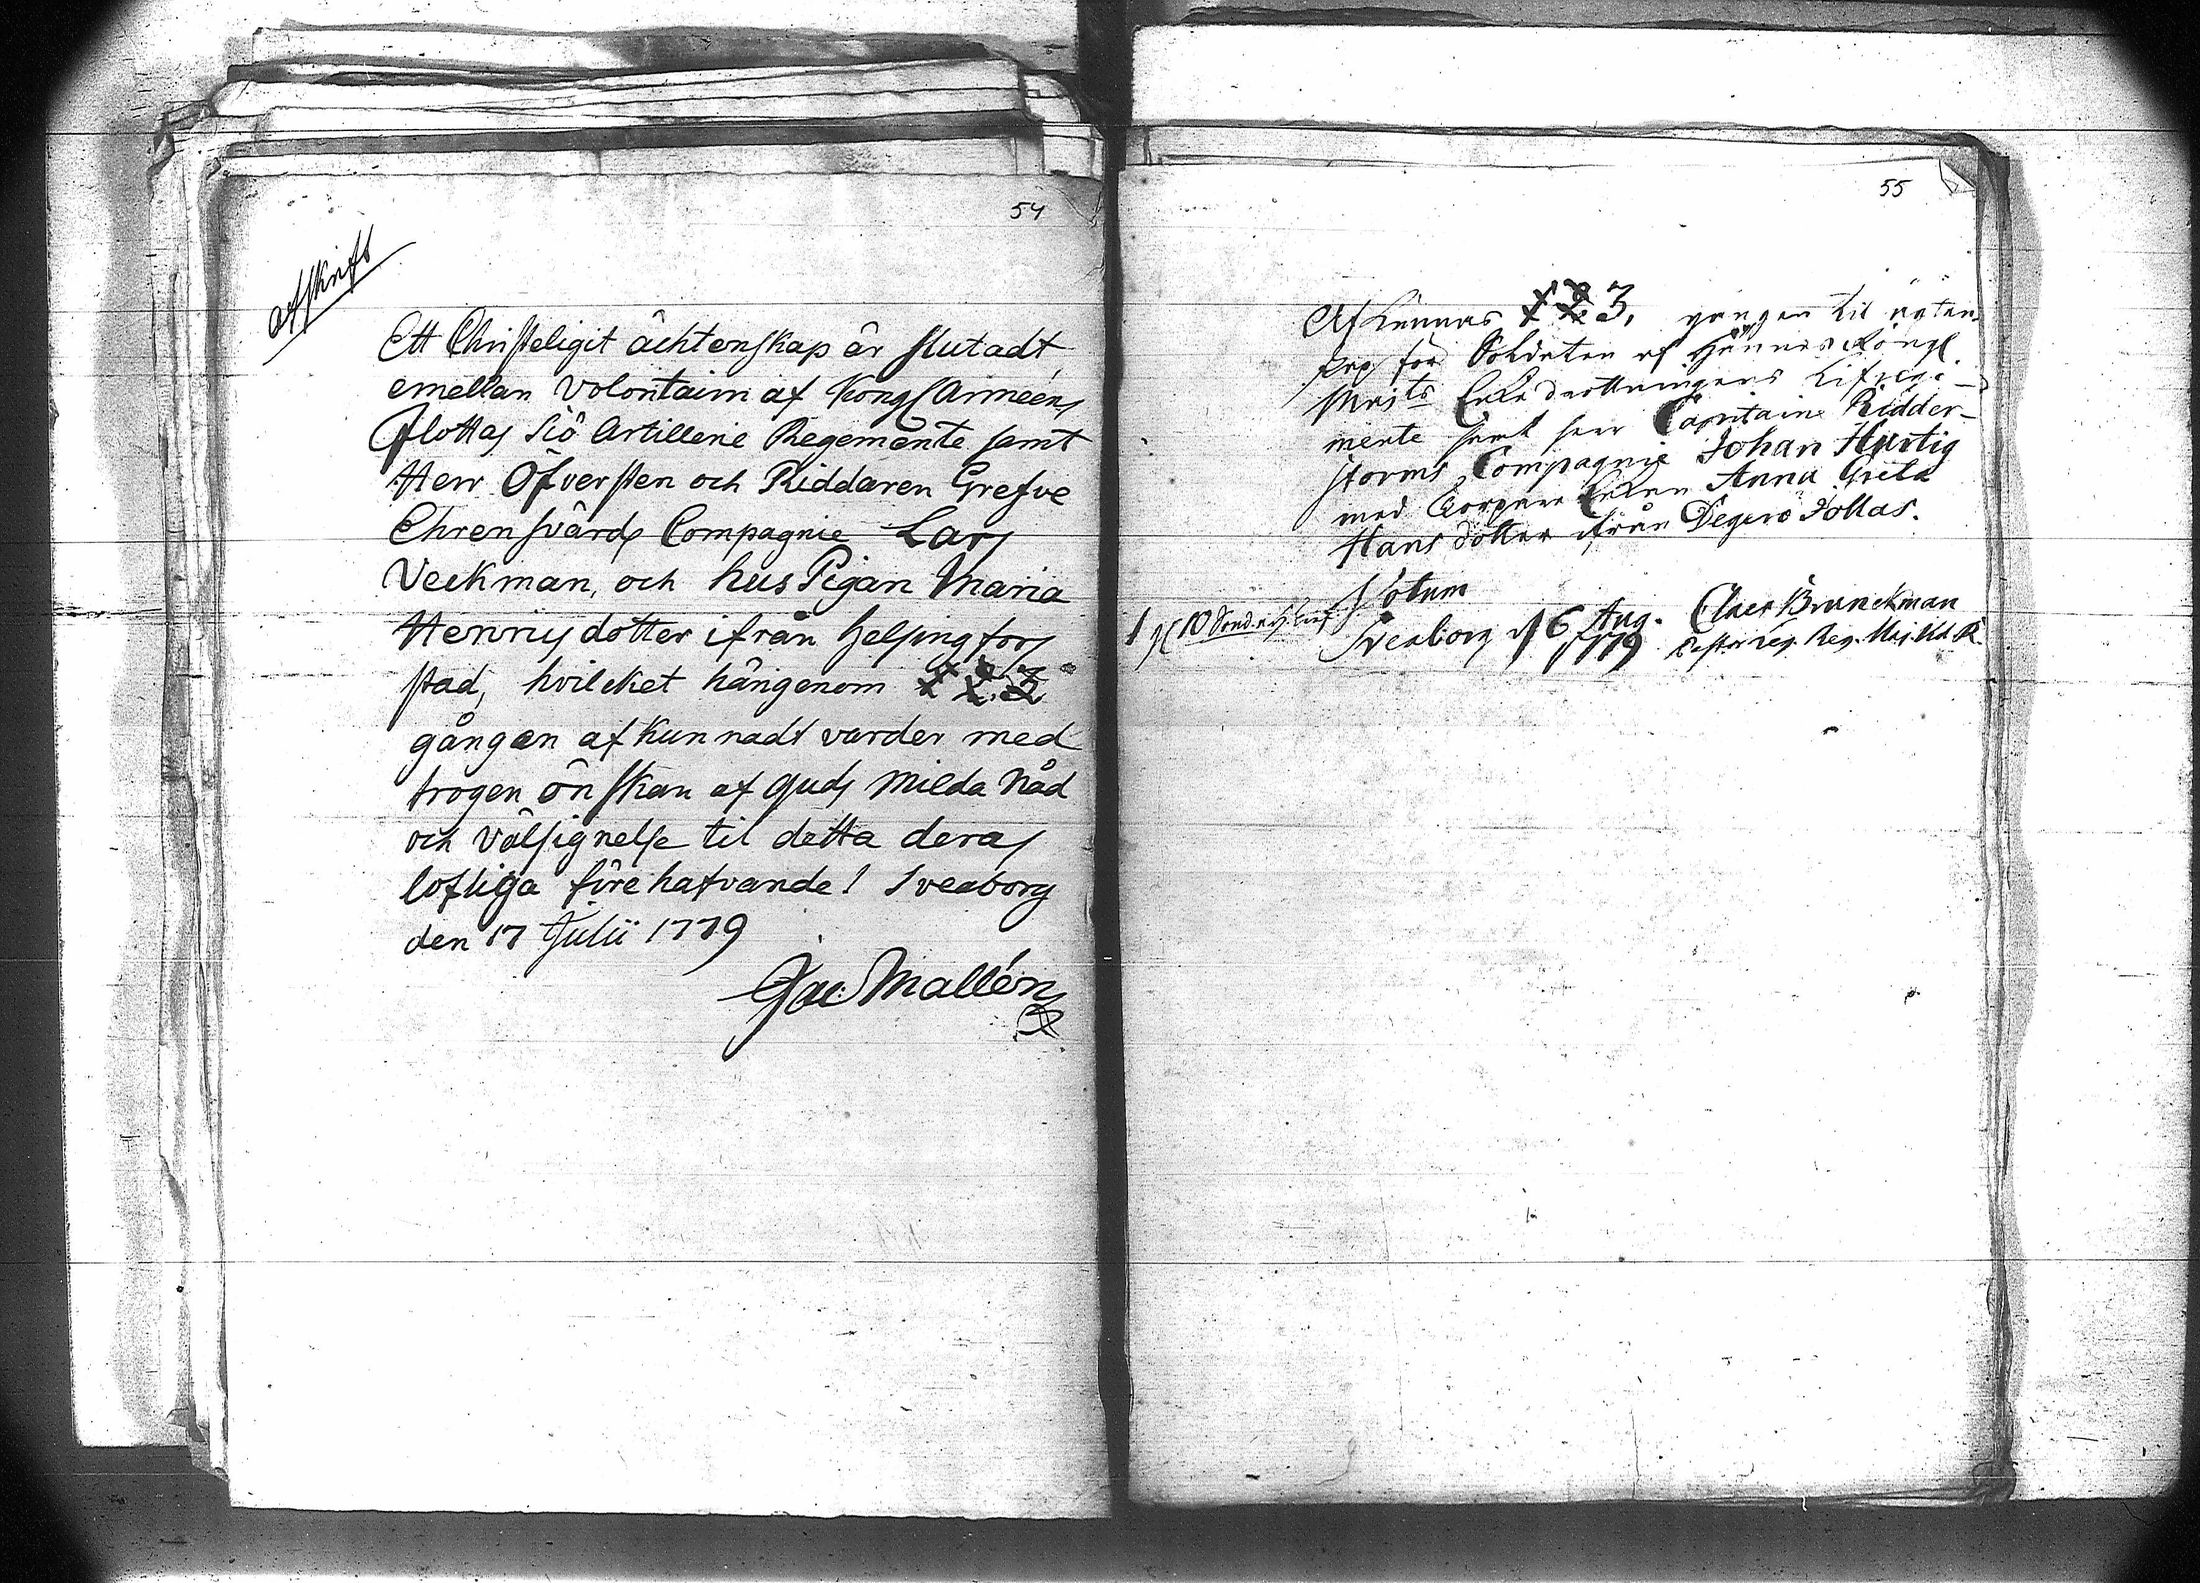 54
Afskrift
Ett Christeligit ächtenskap är slutadt
emellan Volontairn af Kongl Arméens
Flottas Siö Artillerie Regemente samt
Herr Öfversten och Riddaren Grefve
Ehrensvärds Compagnie Lars
Veckman, och hus Pigan Maria
Henricsdotter ifrån Helsingfors
stad, hvilcket härigenom 1 2. 3
gången afkunnadt varder med
trogen önskan af Guds Milda Nåd
och Välsignelse til detta deras
lofliga förehafvande! Sveaborg
den 17 Julii 1779
Jac Mallén
55
Af Kunnas 1 2. 3. gången til ägten
skap för Soldaten af Hännes Kongl.
Maj:ts Enkedrottningens Lifrege-
mente samt herr Capitaine Ridder-
storms Compagnie Johan Hurtig
med Enkan Anna Greta
Hans dotter ifrån Degerö Jollas.
Notum
Sveaborg d 6 Aug. Claes Brunckman
1779 Pastor Reg. Maj.